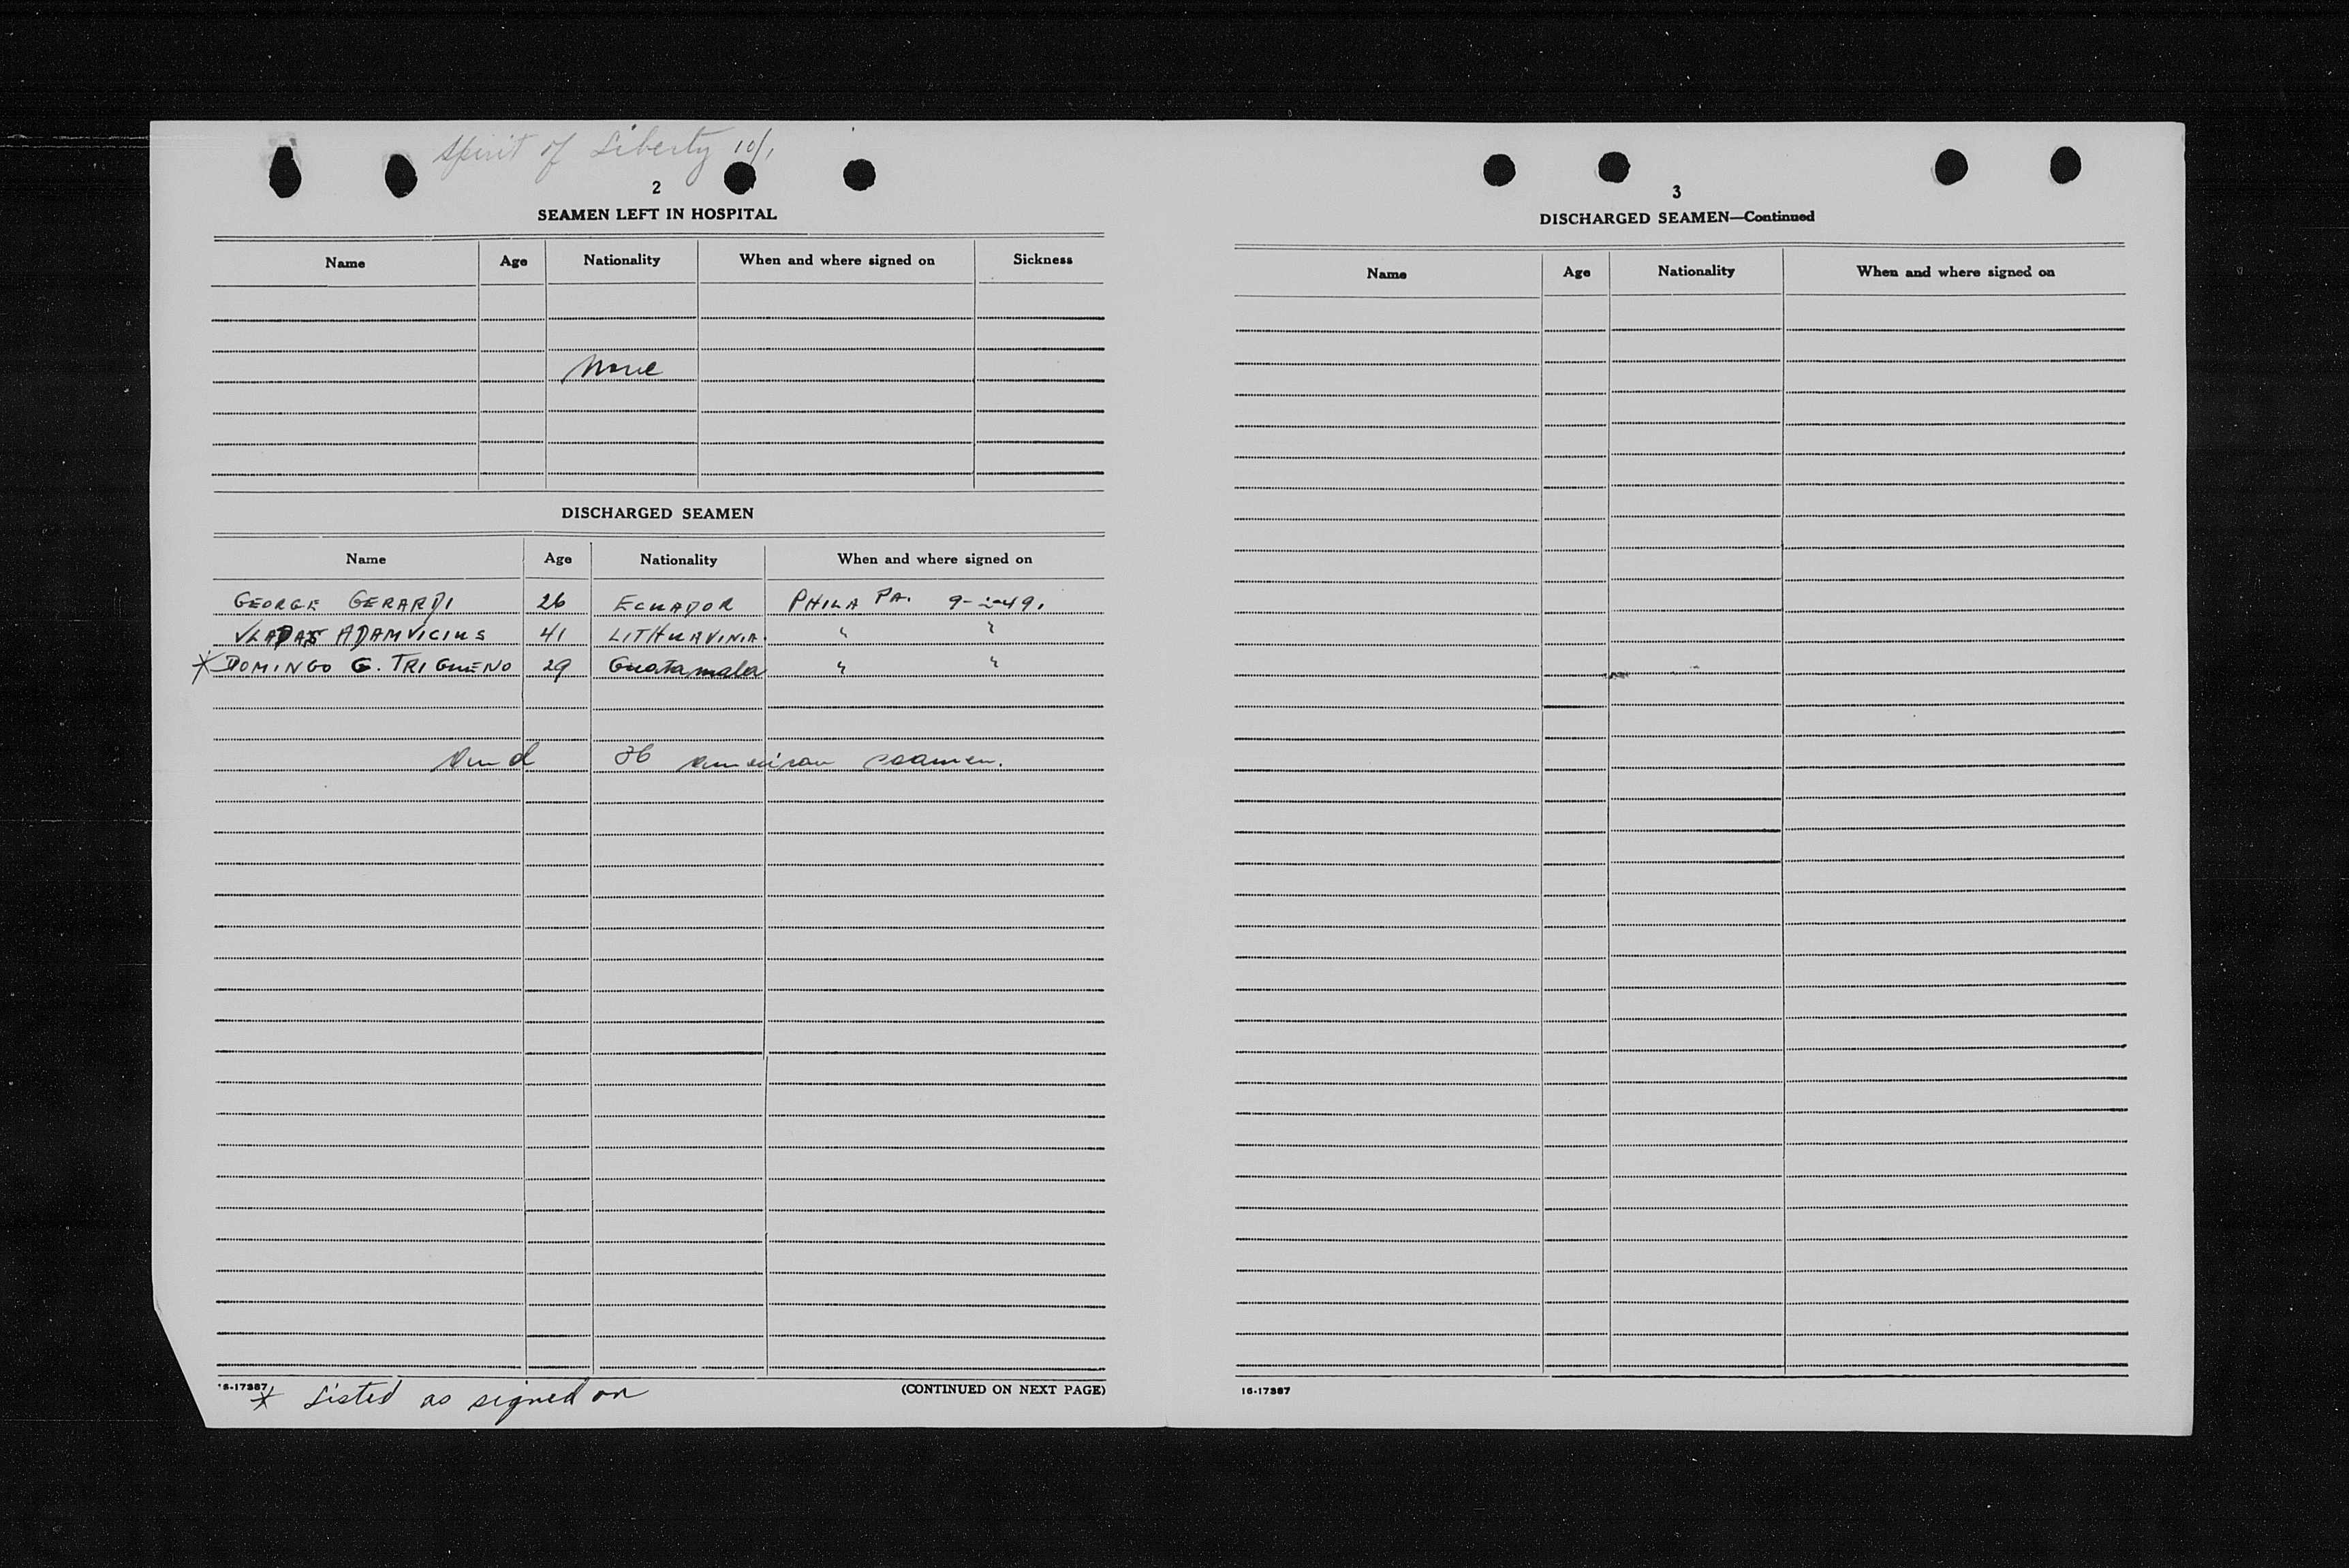 Spirit of Liberty 10/1
2
SEAMEN LEFT IN HOSPITAL
Name Age Nationality When and where signed on Sickness
None
DISCHARGED SEAMEN
Name Age Nationality When and where signed on
GEORGE GERARDI 26 ECUADOR PHILA PA. 9-2-49.
VLADAS ADAMVICIUS 41 LITHUAVINIA. " "
* DOMINGO G. TRIGUENO 29 Guatamala " "
And 36 American seamen.
(CONTINUED ON NEXT PAGE)
* Listed as signed on
3
DISCHARGED SEAMEN—Continued
Name Age Nationality When and where signed on
16-17387